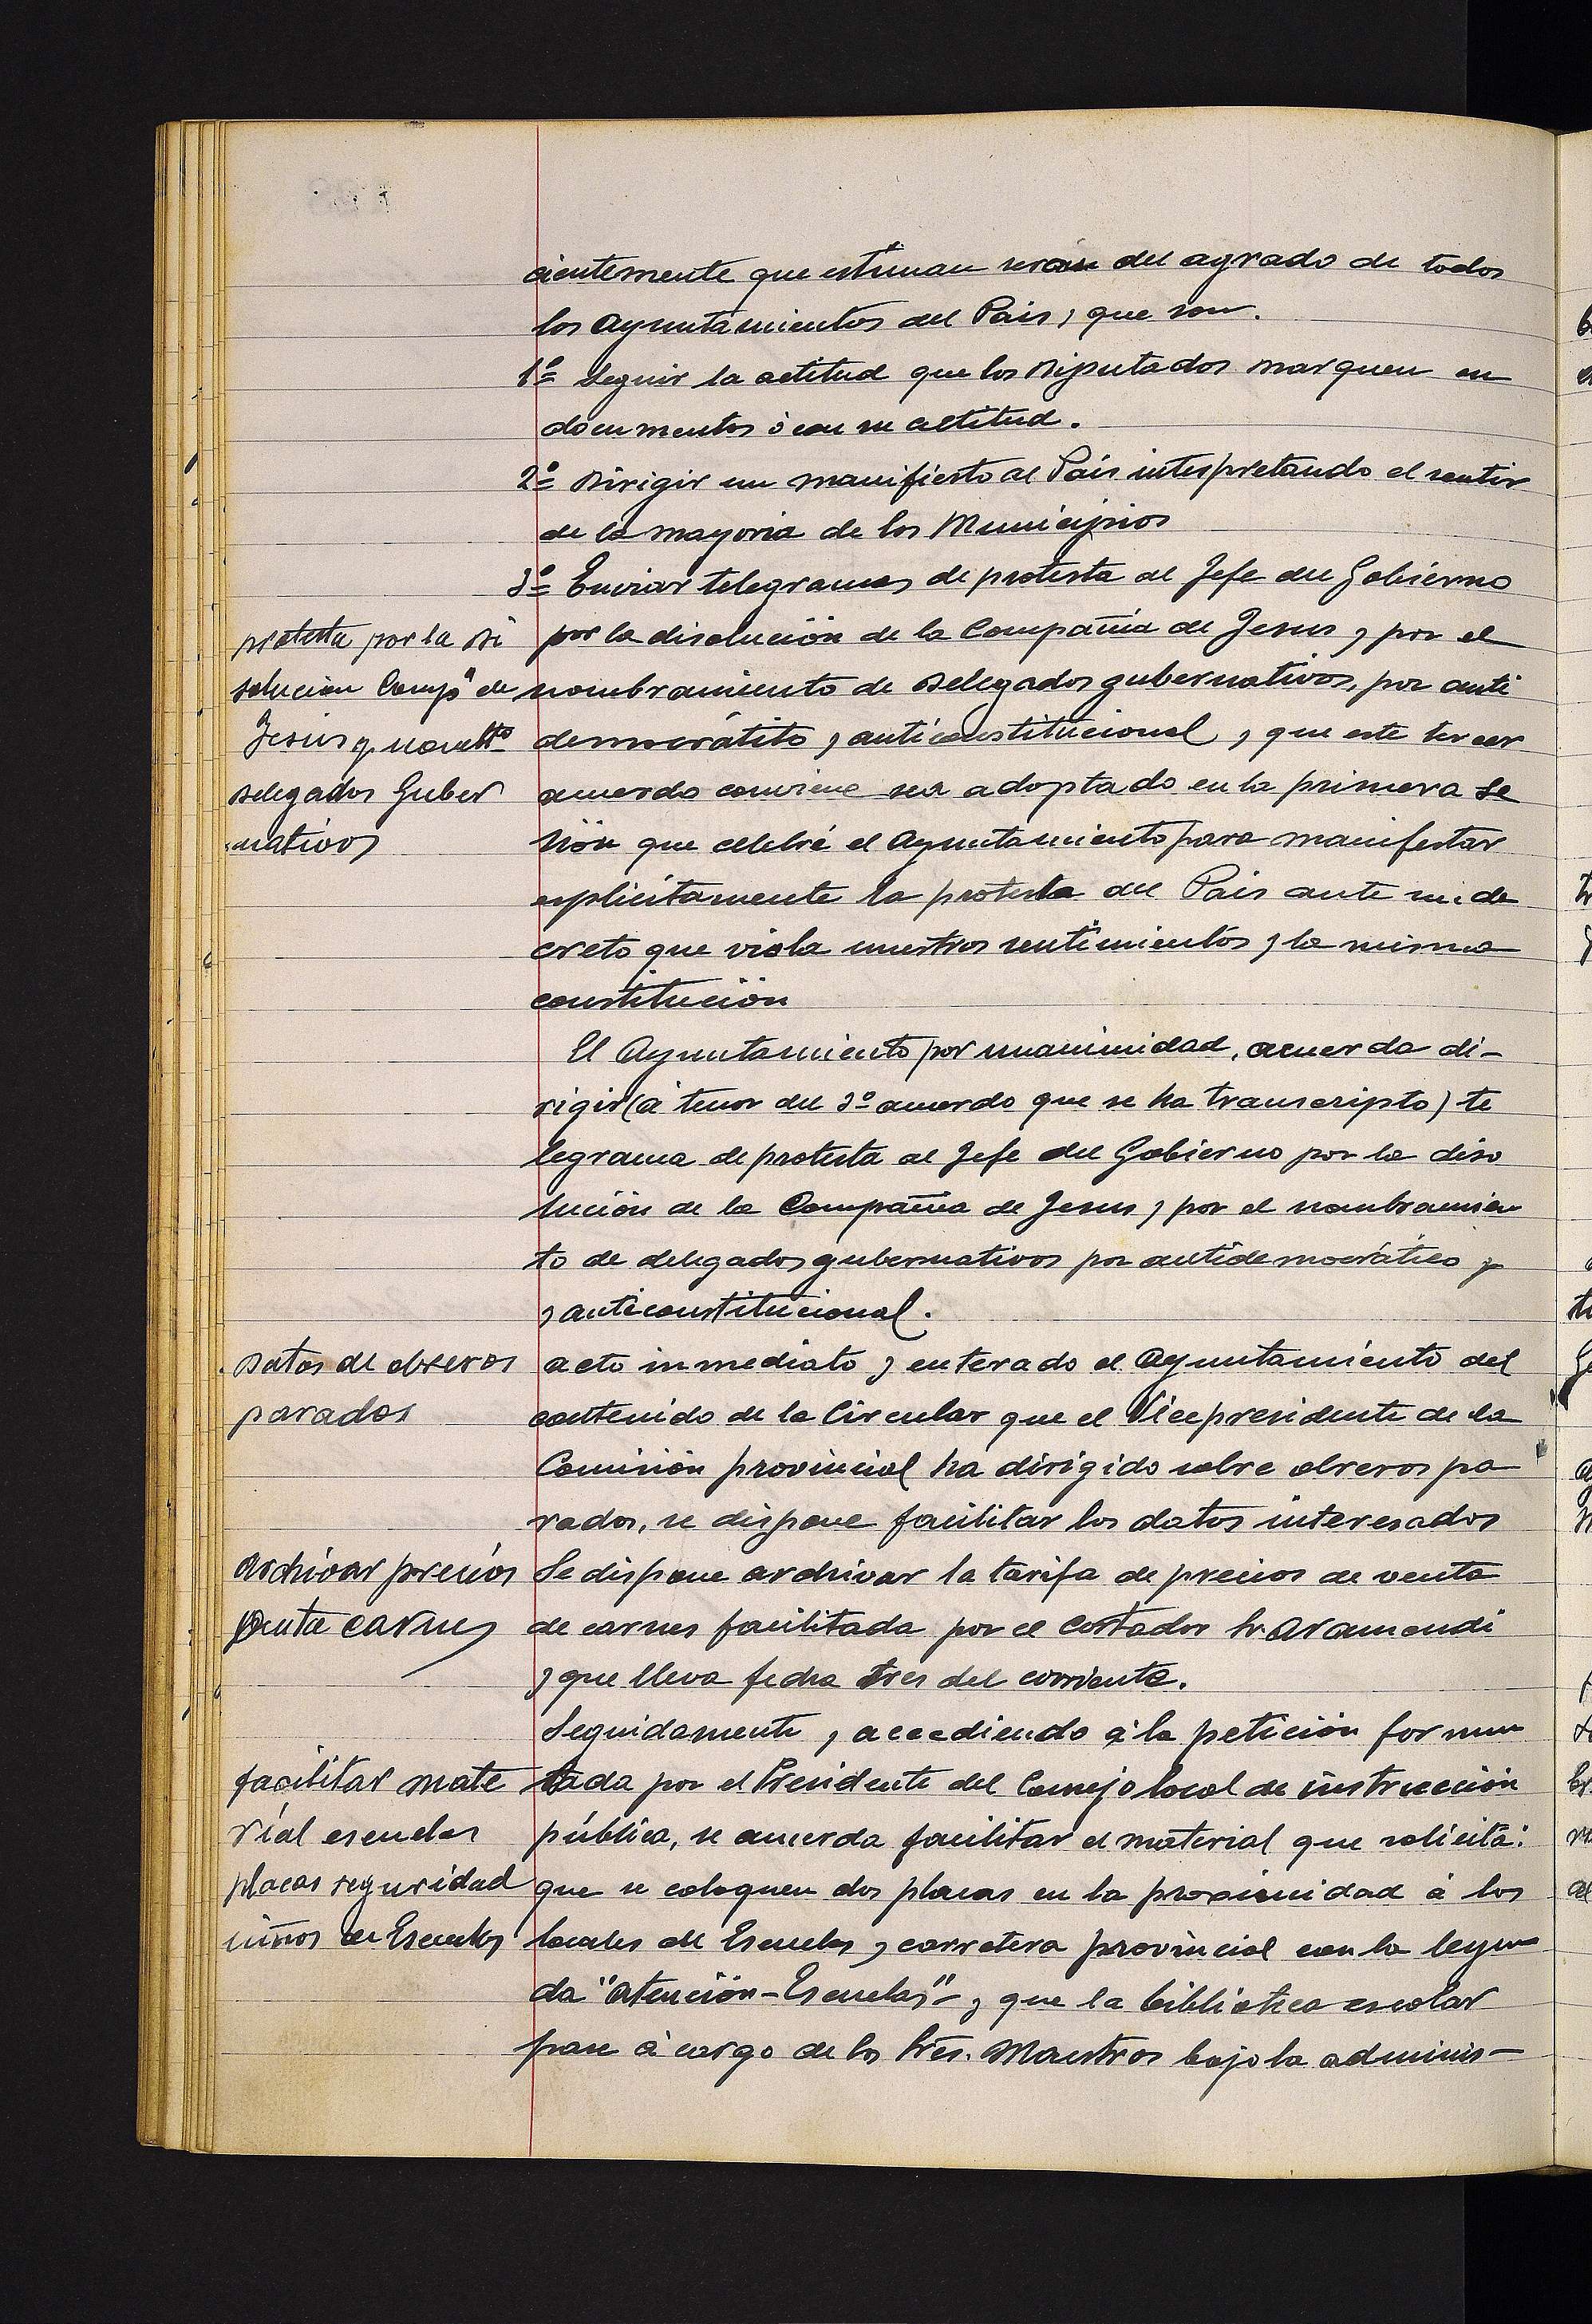 cientemente que estiman serán del agrado de todos
los Ayuntamientos del Pais, que son.
1º Seguir la actitud que los Diputados marquen en
documentos ó con su actitud.
2º Dirigir un manifiesto al Pais interpretando el sentir
de la mayoria de los Municipios
3º Enviar telegramas de protesta al Jefe del Gobierno
protesta por la di
por la disolución de la Compañia de Jesus y por el
solucion Compª de
nombramiento de Delegados gubernativos, por anti
Jesús y nombtº
democrátito y anticonstitucional y que este tercer
Delegados Guber
acuerdo conviene sea adoptado en la primera se
nativos
sión que celebré el Ayuntamiento para manifestar
esplicitamente la protesta del Pais ante un de
creto que viola nuestros sentimientos y la misma
constitución
El Ayuntamiento por unanimidad, acuerda di-
rigir (á tenor del 3º acuerdo que se ha transcripto) te
legrama de protesta al Jefe del Gobierno por la diso
lución de la Compañia de Jesus y por el nombramien
to de delegados gubernativos por antidemocrático y
y anticonstitucional.
Datos de obreros
acto inmediato y enterado el Ayuntamiento del
parados
contenido de la Circular que el Vicepresidente de la
Comisión provincial ha dirigido sobre obreros pa
rados, se dispone facilitar los datos interesados
Archivar precios
Se dispone archivar la tarifa de precios de venta
venta carnes
de carnes facilitada por el cortador Sr. Aramendi
y que lleva fecha tres del corriente.
Seguidamente y accediendo á la petición formu
facilitar mate
lada por el Presidente del Consejo local de instrucción
rial escuelas
pública, se acuerda facilitar el material que solicita:
placas seguridad
que se coloquen dos placas en la proximidad á los
niños de Escuelas
locales de Escuelas y carretera provincial con la leyen
da "Atención-Escuelas" y que la biblioteca escolar
pase á cargo de los Sres. Maestros bajo la adminis-